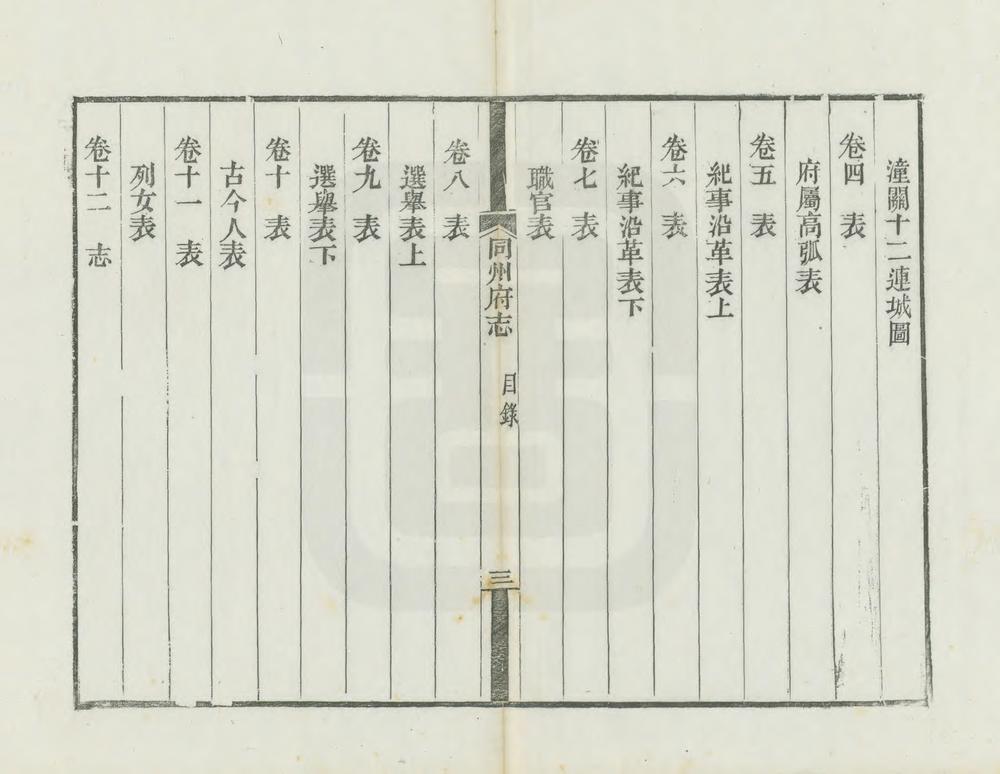 潼關十二連城圖
卷四　表
府屬高弧表
卷五　表
紀事沿革表上
卷六　表
紀事沿革表下
卷七　表
職官表
同州府志　目錄　三
卷八　表
選舉表上
卷九　表
選舉表下
卷十　表
古今人表
卷十一　表
列女表
卷十二　志